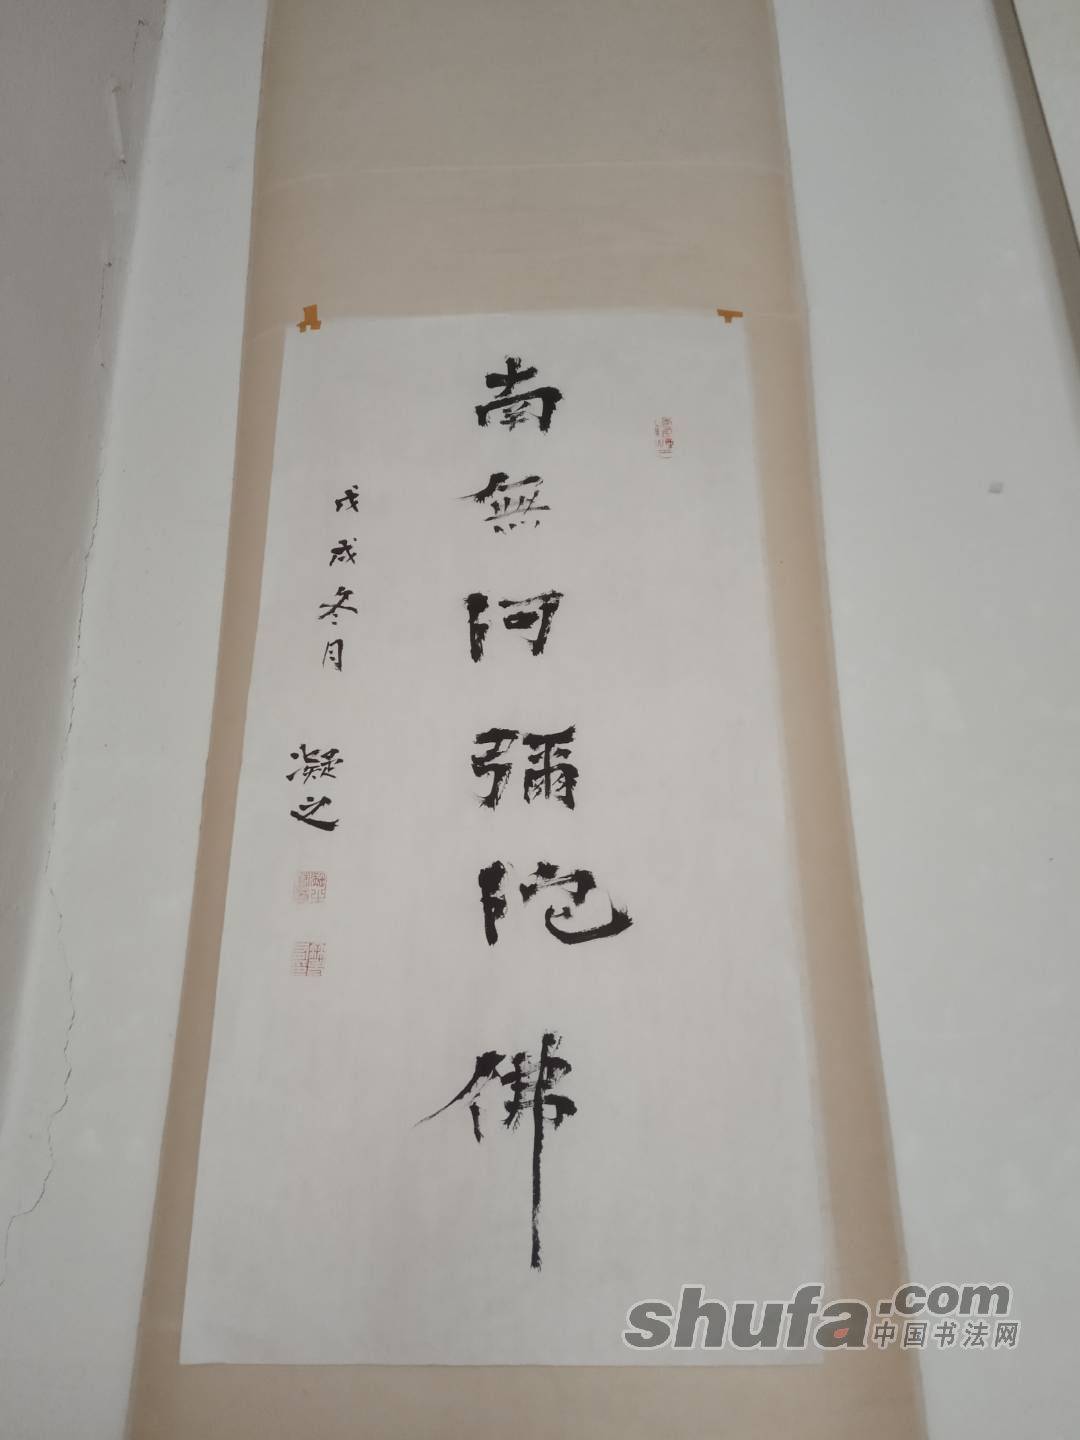 南無阿彌陀佛
戊戌冬月
凝之
shufa.com
中国书法网